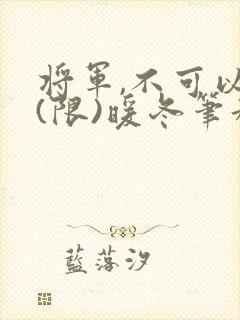 將軍,不可以
(限)暖冬筆
藍落汐